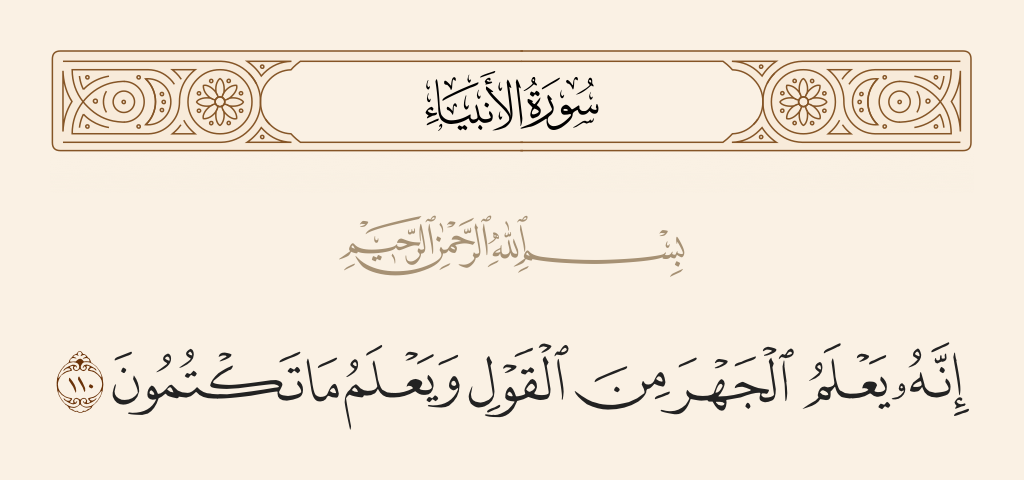 سُورَةُ الأَنبِيَاءِ
بِسْمِ ٱللَّهِ ٱلرَّحْمَٰنِ ٱلرَّحِيمِ
إِنَّهُۥ يَعْلَمُ ٱلْجَهْرَ مِنَ ٱلْقَوْلِ وَيَعْلَمُ مَا تَكْتُمُونَ ١١٠